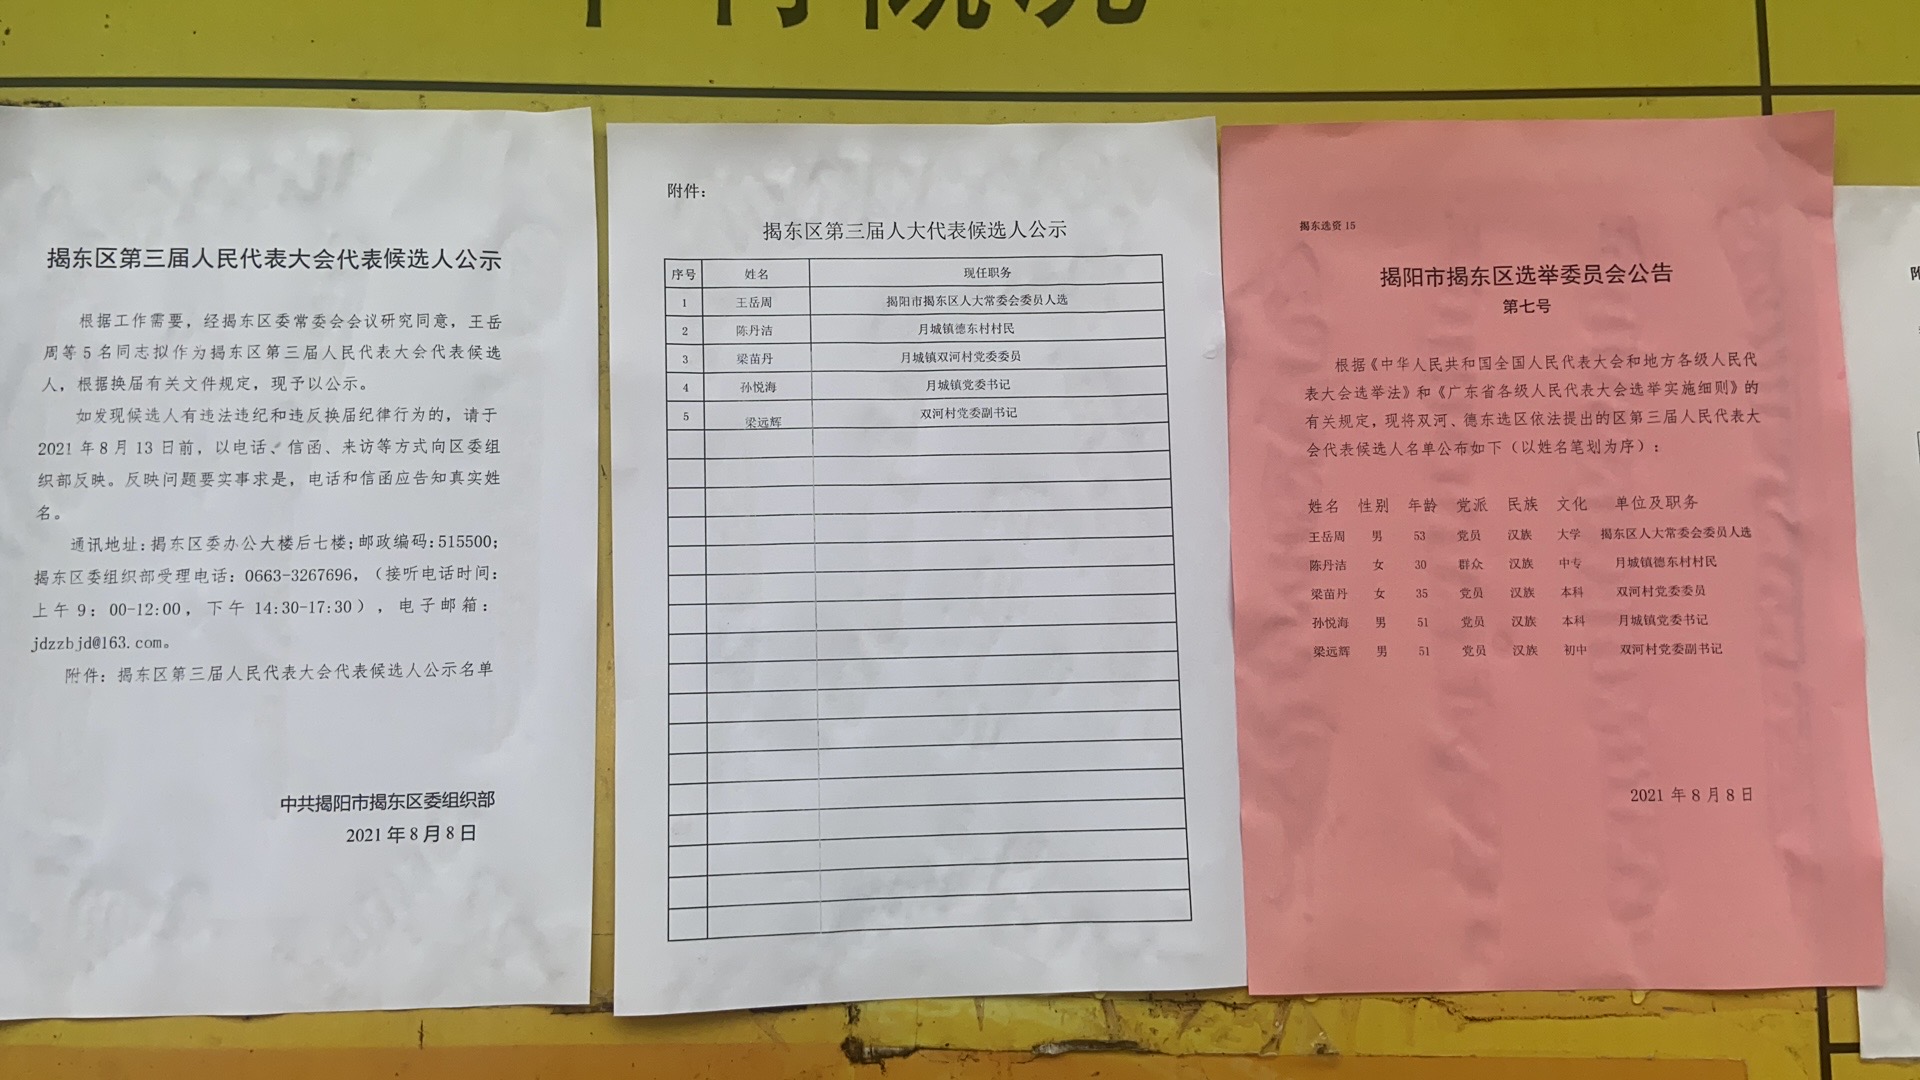 揭东区第三届人民代表大会代表候选人公示
根据工作需要，经揭东区委常委会会议研究同意，王岳
周等5名同志拟作为揭东区第三届人民代表大会代表候选
人，根据换届有关文件规定，现予以公示。
如发现候选人有违法违纪和违反换届纪律行为的，请于
2021年8月13日前，以电话、信函、来访等方式向区委组
织部反映。反映问题要实事求是，电话和信函应告知真实姓
名。
通讯地址：揭东区委办公大楼后七楼；邮政编码：515500；
揭东区委组织部受理电话：0663-3267696，（接听电话时间：
上午9：00-12:00，下午14:30-17:30），电子邮箱：
jdzzbjd@163.com。
附件：揭东区第三届人民代表大会代表候选人公示名单
中共揭阳市揭东区委组织部
2021年8月8日
附件：
揭东区第三届人大代表候选人公示
序号 姓名 现任职务
1 王岳周 揭阳市揭东区人大常委会委员人选
2 陈丹洁 月城镇德东村村民
3 梁苗丹 月城镇双河村党委委员
4 孙悦海 月城镇党委书记
5 梁远辉 双河村党委副书记
揭东选资15
揭阳市揭东区选举委员会公告
第七号
根据《中华人民共和国全国人民代表大会和地方各级人民代
表大会选举法》和《广东省各级人民代表大会选举实施细则》的
有关规定，现将双河、德东选区依法提出的区第三届人民代表大
会代表候选人名单公布如下（以姓名笔划为序）：
姓名 性别 年龄 党派 民族 文化 单位及职务
王岳周 男 53 党员 汉族 大学 揭东区人大常委会委员人选
陈丹洁 女 30 群众 汉族 中专 月城镇德东村村民
梁苗丹 女 35 党员 汉族 本科 双河村党委委员
孙悦海 男 51 党员 汉族 本科 月城镇党委书记
梁远辉 男 51 党员 汉族 初中 双河村党委副书记
2021年8月8日